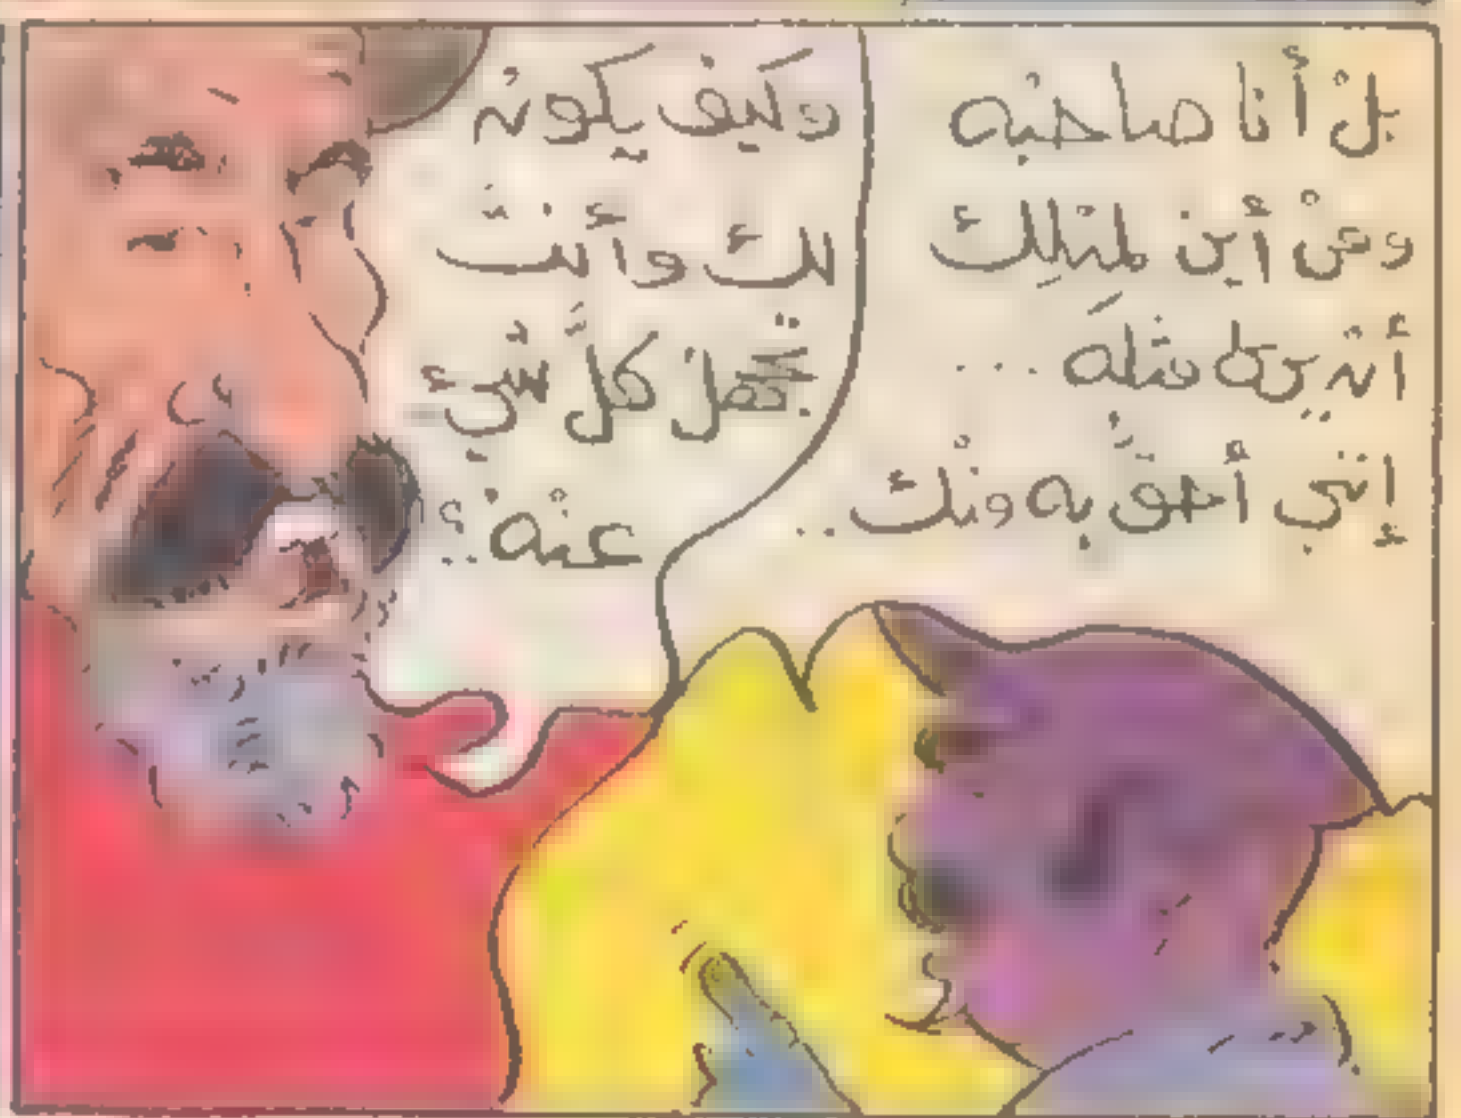 بلْ أنا صاحبُه
ومنْ أين لمثلِك
أنْ يرى مثلَه ...
إنّني أحقّ به منْك ..
وكيف يكونُ
لك وأنت
تجْهلُ كلَّ شيْءٍ
عنْه ؟..